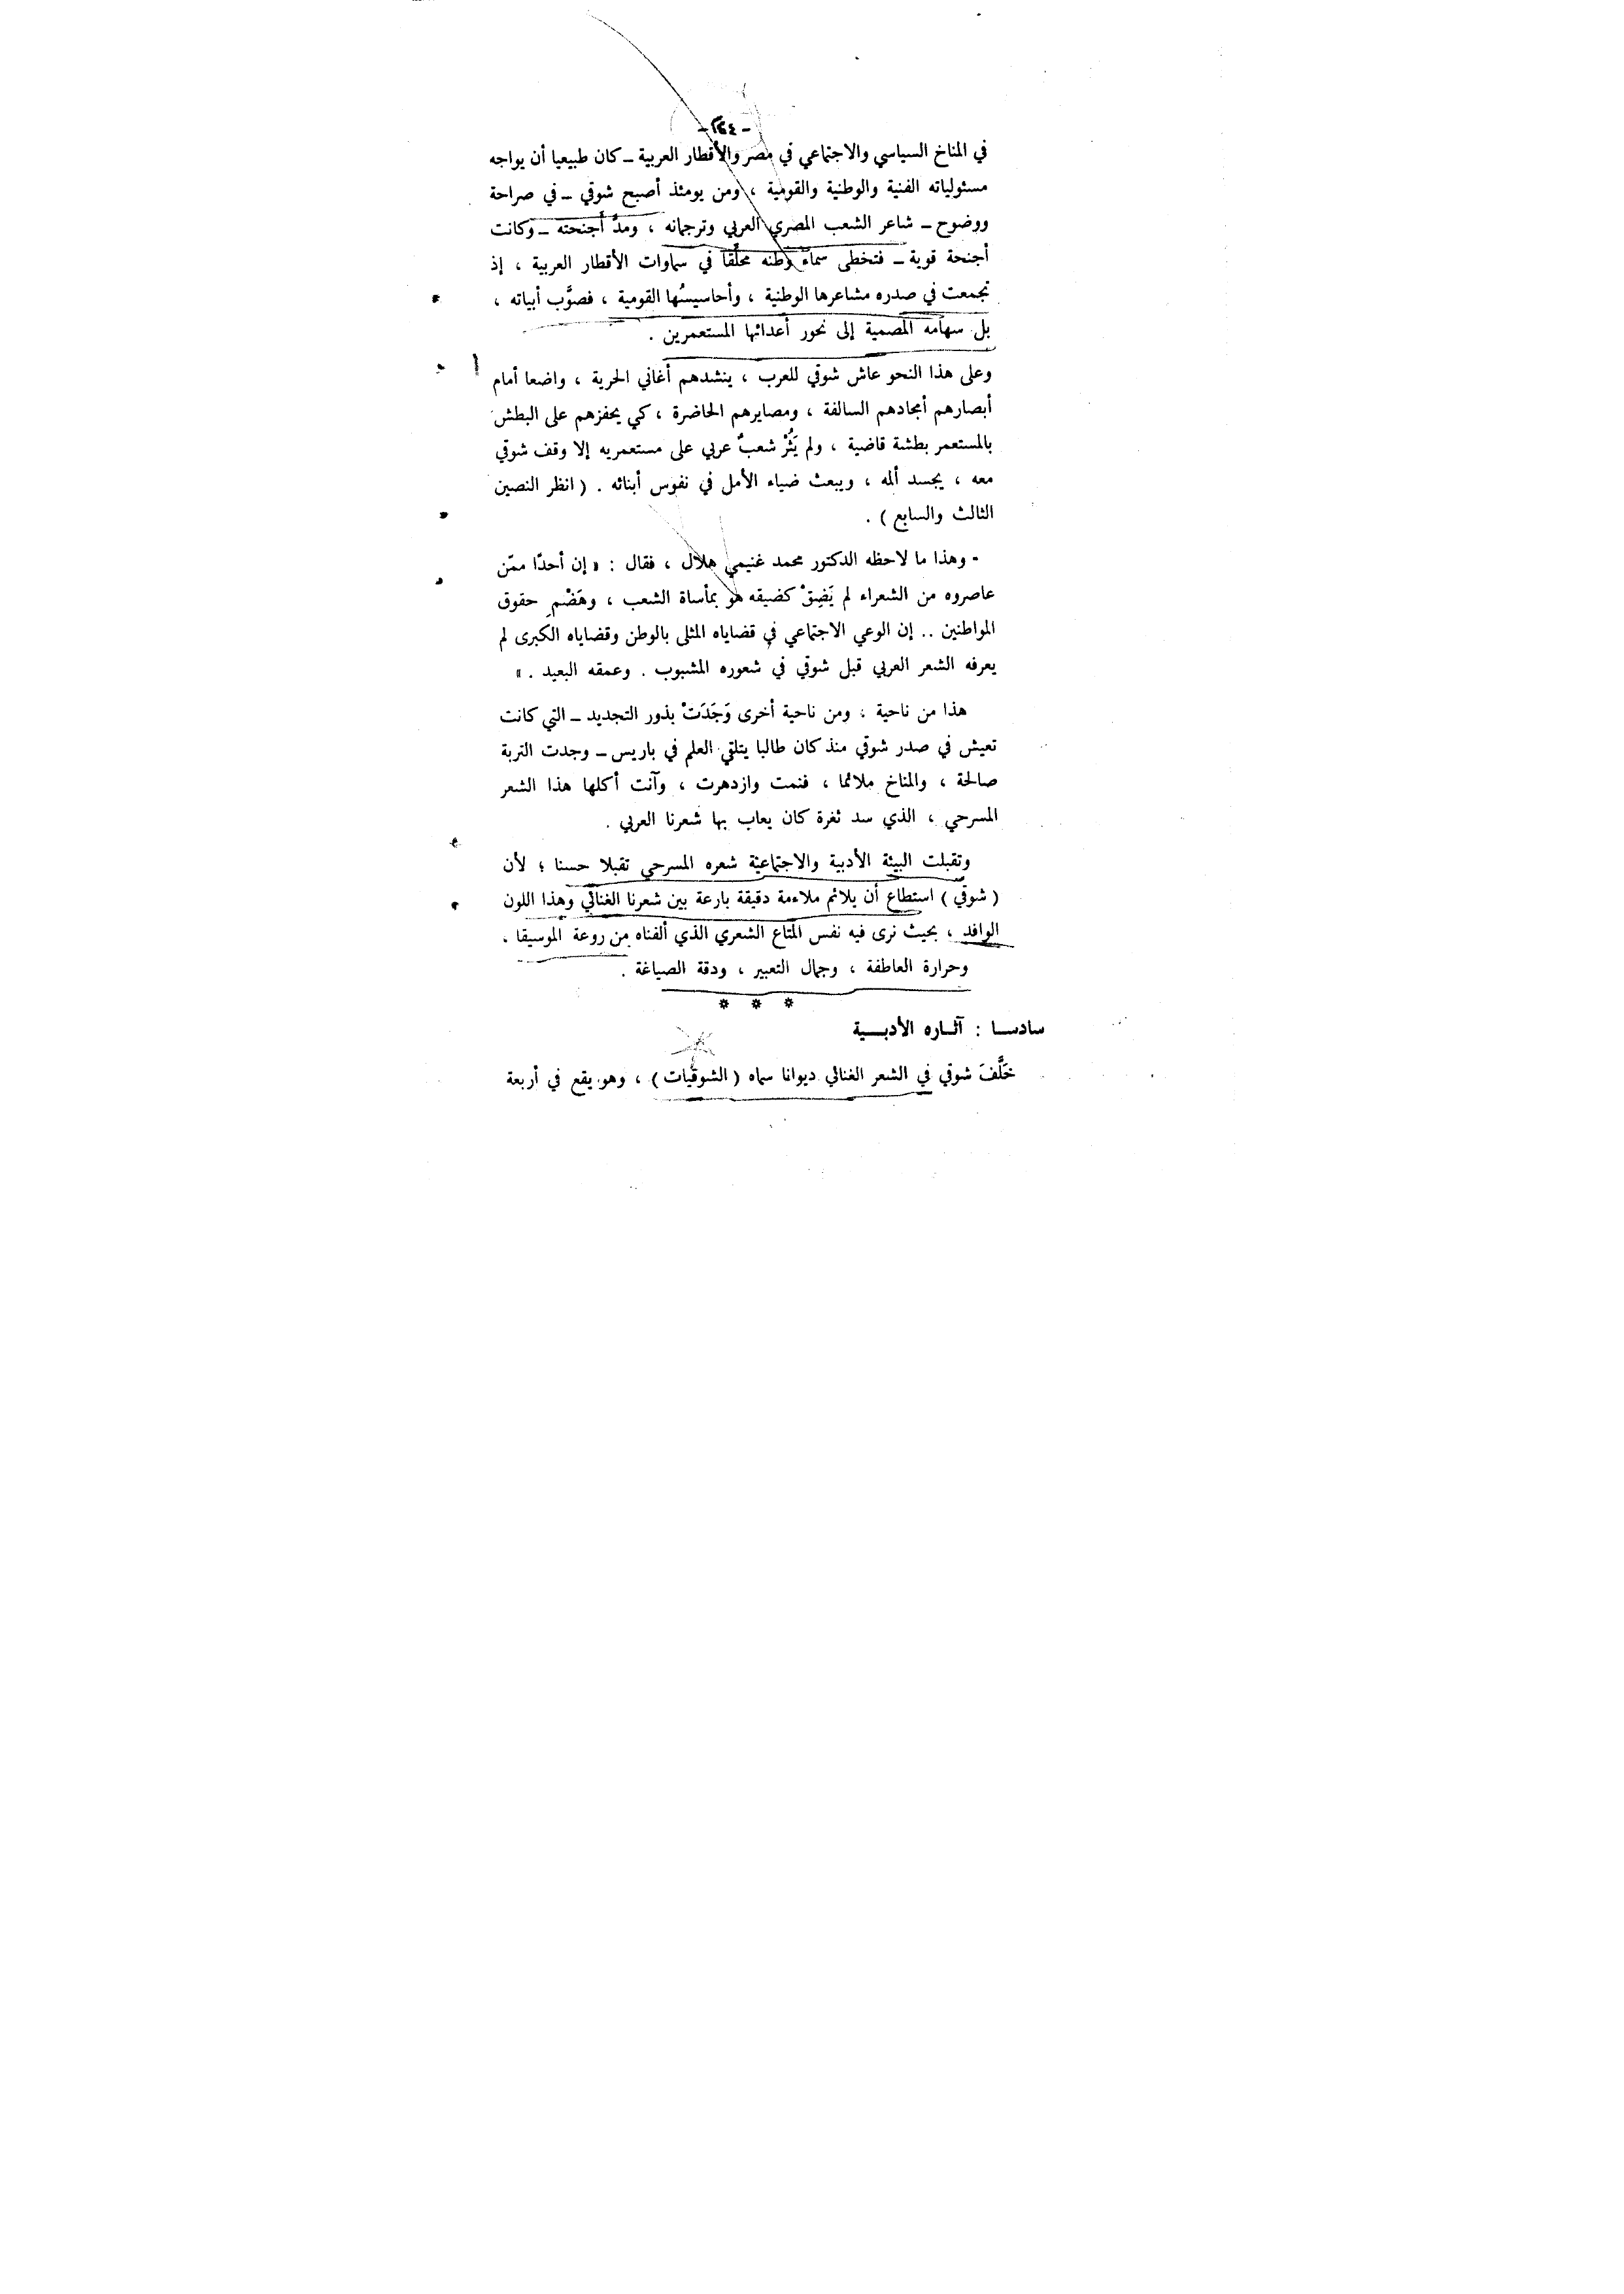 في المناخ السياسي والاجتماعي في مصر والأقطار العربية – كان طبيعيا أن يواجه
مسئولياته الفنية والوطنية والقومية ، ومن يومئذ أصبح شوقي – في صراحة
ووضوح – شاعر الشعب المصري العربي وترجمانه ، ومدَّ أجنحته – وكانت
أجنحة قوية – فتخطى سماءَ وطنه محلِّقا في سماوات الأقطار العربية ، إذ
تجمعت في صدره مشاعرها الوطنية ، وأحاسيسُها القومية ، فصوَّب أبياته ،
بل سهامه المصمية إلى نحور أعدائها المستعمرين .
وعلى هذا النحو عاش شوقي للعرب ، ينشدهم أغاني الحرية ، واضعا أمام
أبصارهم أمجادهم السالفة ، ومصايرهم الحاضرة ، كي يحفزهم على البطش
بالمستعمر بطشة قاضية ، ولم يَثُرْ شعبٌ عربي على مستعمريه إلا وقف شوقي
معه ، يجسد ألمه ، ويبعث ضياء الأمل في نفوس أبنائه . ( انظر النصين
الثالث والسابع ) .
- وهذا ما لاحظه الدكتور محمد غنيمي هلال ، فقال : « إن أحدًا ممّن
عاصروه من الشعراء لم يَضِقْ كضيقه هو بمأساة الشعب ، وهَضْمِ حقوق
المواطنين .. إن الوعي الاجتماعي في قضاياه المثلى بالوطن وقضاياه الكبرى لم
يعرفه الشعر العربي قبل شوقي في شعوره المشبوب . وعمقه البعيد . »
هذا من ناحية ، ومن ناحية أخرى وَجَدَتْ بذور التجديد – التي كانت
تعيش في صدر شوقي منذ كان طالبا يتلقى العلم في باريس – وجدت التربة
صالحة ، والمناخ ملائما ، فنمت وازدهرت ، وآتت أكلها هذا الشعر
المسرحي ، الذي سد ثغرة كان يعاب بها شعرنا العربي .
وتقبلت البيئة الأدبية والاجتماعية شعره المسرحي تقبلا حسنا ؛ لأن
( شوقي ) استطاع أن يلائم ملاءمة دقيقة بارعة بين شعرنا الغنائي وهذا اللون
الوافد ، بحيث نرى فيه نفس المتاع الشعري الذي ألفناه من روعة الموسيقا ،
وحرارة العاطفة ، وجمال التعبير ، ودقة الصياغة .
* * *
سادسا : آثاره الأدبية
خَلَّفَ شوقي في الشعر الغنائي ديوانا سماه ( الشوقيات ) ، وهو يقع في أربعة